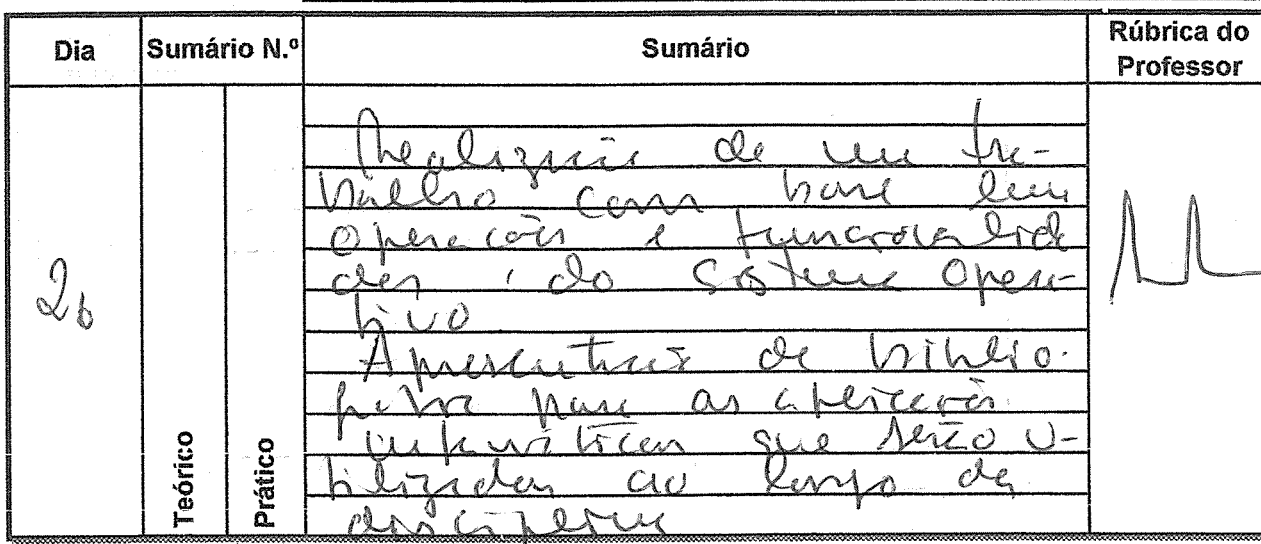 Dia
Sumário N.º
Sumário
Rúbrica do
Professor
26
Teórico
Prático
Realização de um tra-
balho com base em
Operações e funcionalida
des do Sistema Opera-
tivo
Apresentação de biblio-
grafia para as aplicações
informáticas que serão u-
tilizadas ao longo da
disciplina